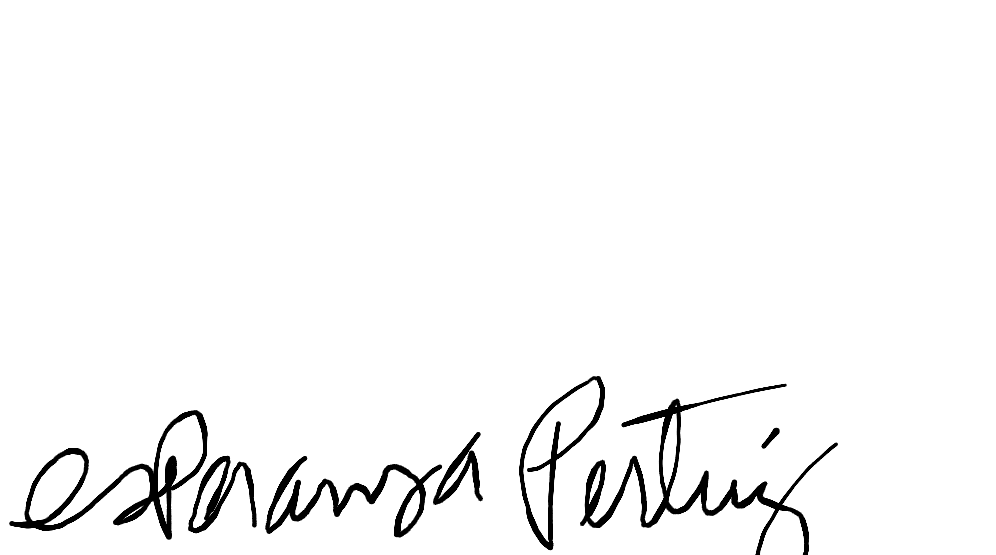 esperanza Pertuz